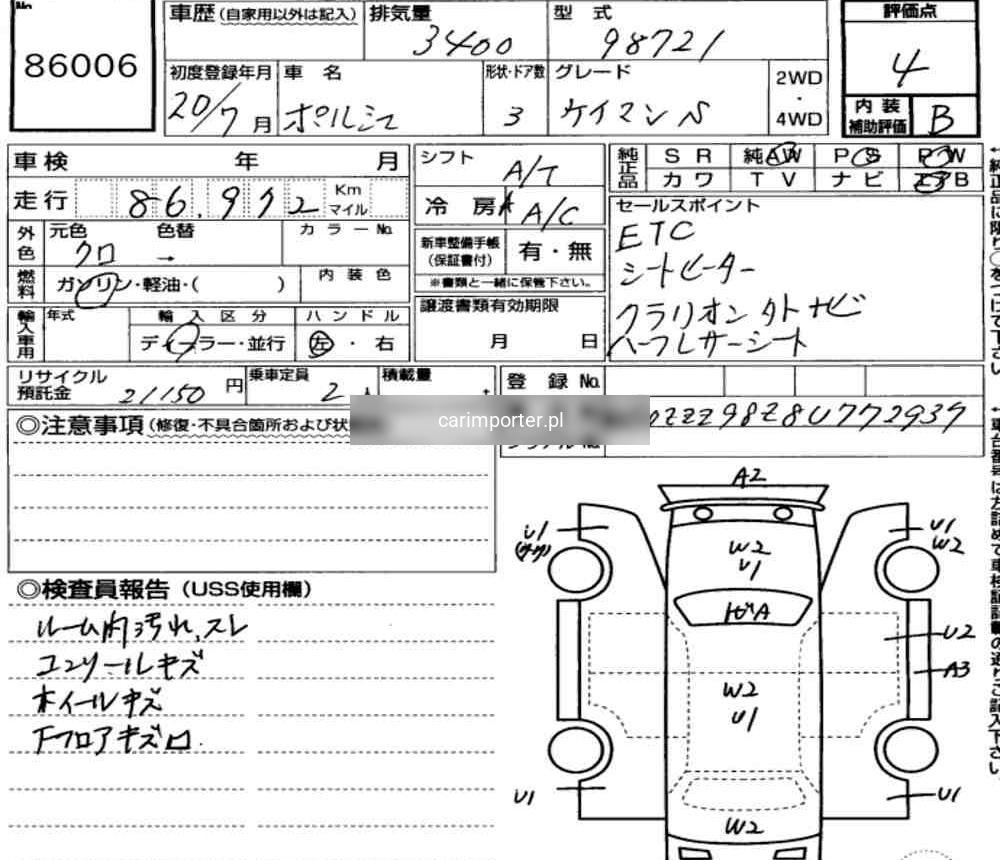 No.
86006
車歴 (自家用以外は記入) 排気量 型 式 評価点
3400 98721 4
初度登録年月 車 名 形状・ドア数 グレード 2WD・4WD
20/7月 ポルシェ 3 ケイマン S
内装補助評価 B
車検 年 月
走行 86,972 Km マイル
外色 元色 色替 カラーNo.
クロ →
燃料 ガソリン・軽油・( ) 内装色
輸入車用 年式 輸入区分 ハンドル
ディーラー・並行 左・右
シフト A/T
冷房 A/C
新車整備手帳 (保証書付) 有・無
※書類と一緒に保管下さい。
譲渡書類有効期限
月 日
純正品 SR 純AW PS PW
カワ TV ナビ エアB
セールスポイント
ETC
シートヒーター
クラリオン タトナビ
ハーフレザーシート
リサイクル預託金 21150円 乗車定員 2人 積載量 t
登録No.
ZZZ98Z8U772939
carimporter.pl
◎注意事項 (修復・不具合箇所および状
◎検査員報告 (USS使用欄)
ルーム内汚れ、スレ
コンソールキズ
ホイールキズ
Fフロアキズ
A2
U1
U1
W2
W2
U1
U2
A3
W2
U1
U1
U1
W2